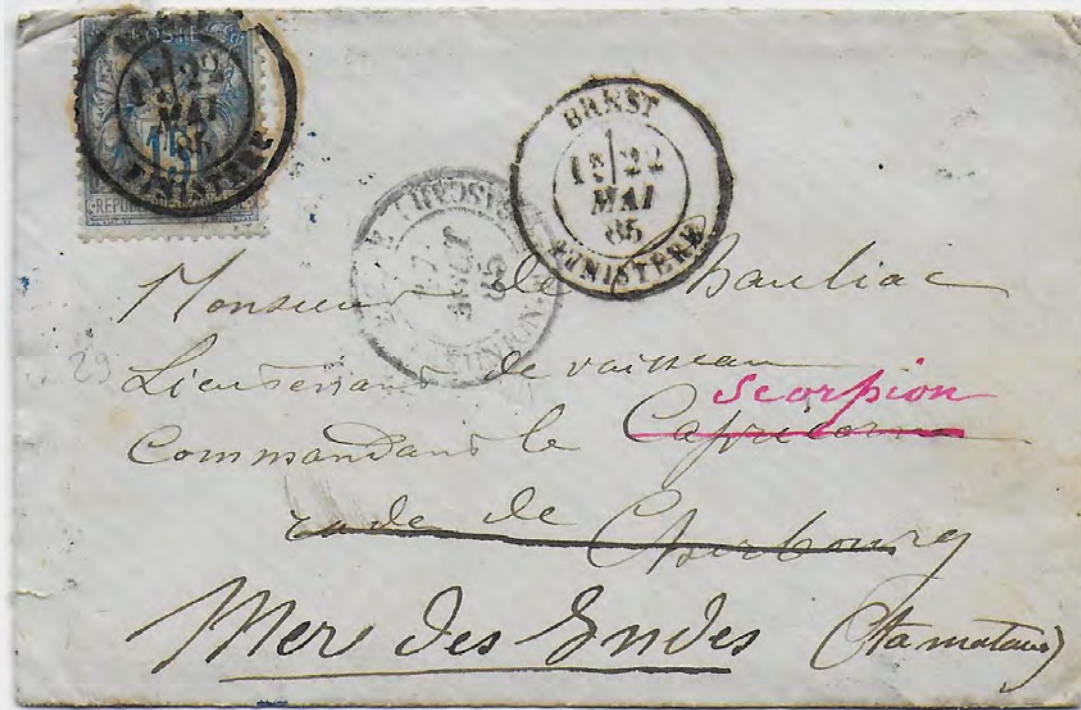 POSTE
1E 22
MAI
85
FINISTERE
15
REPUB
BREST
1E 22
MAI
85
FINISTERE
AOUT
85
REUNION
Monsieur de Bauliac
Lieutenant de vaisseau
scorpion
Commandant le Capricorne
rade de Cherbourg
Mer des Indes (Tamatave)
29